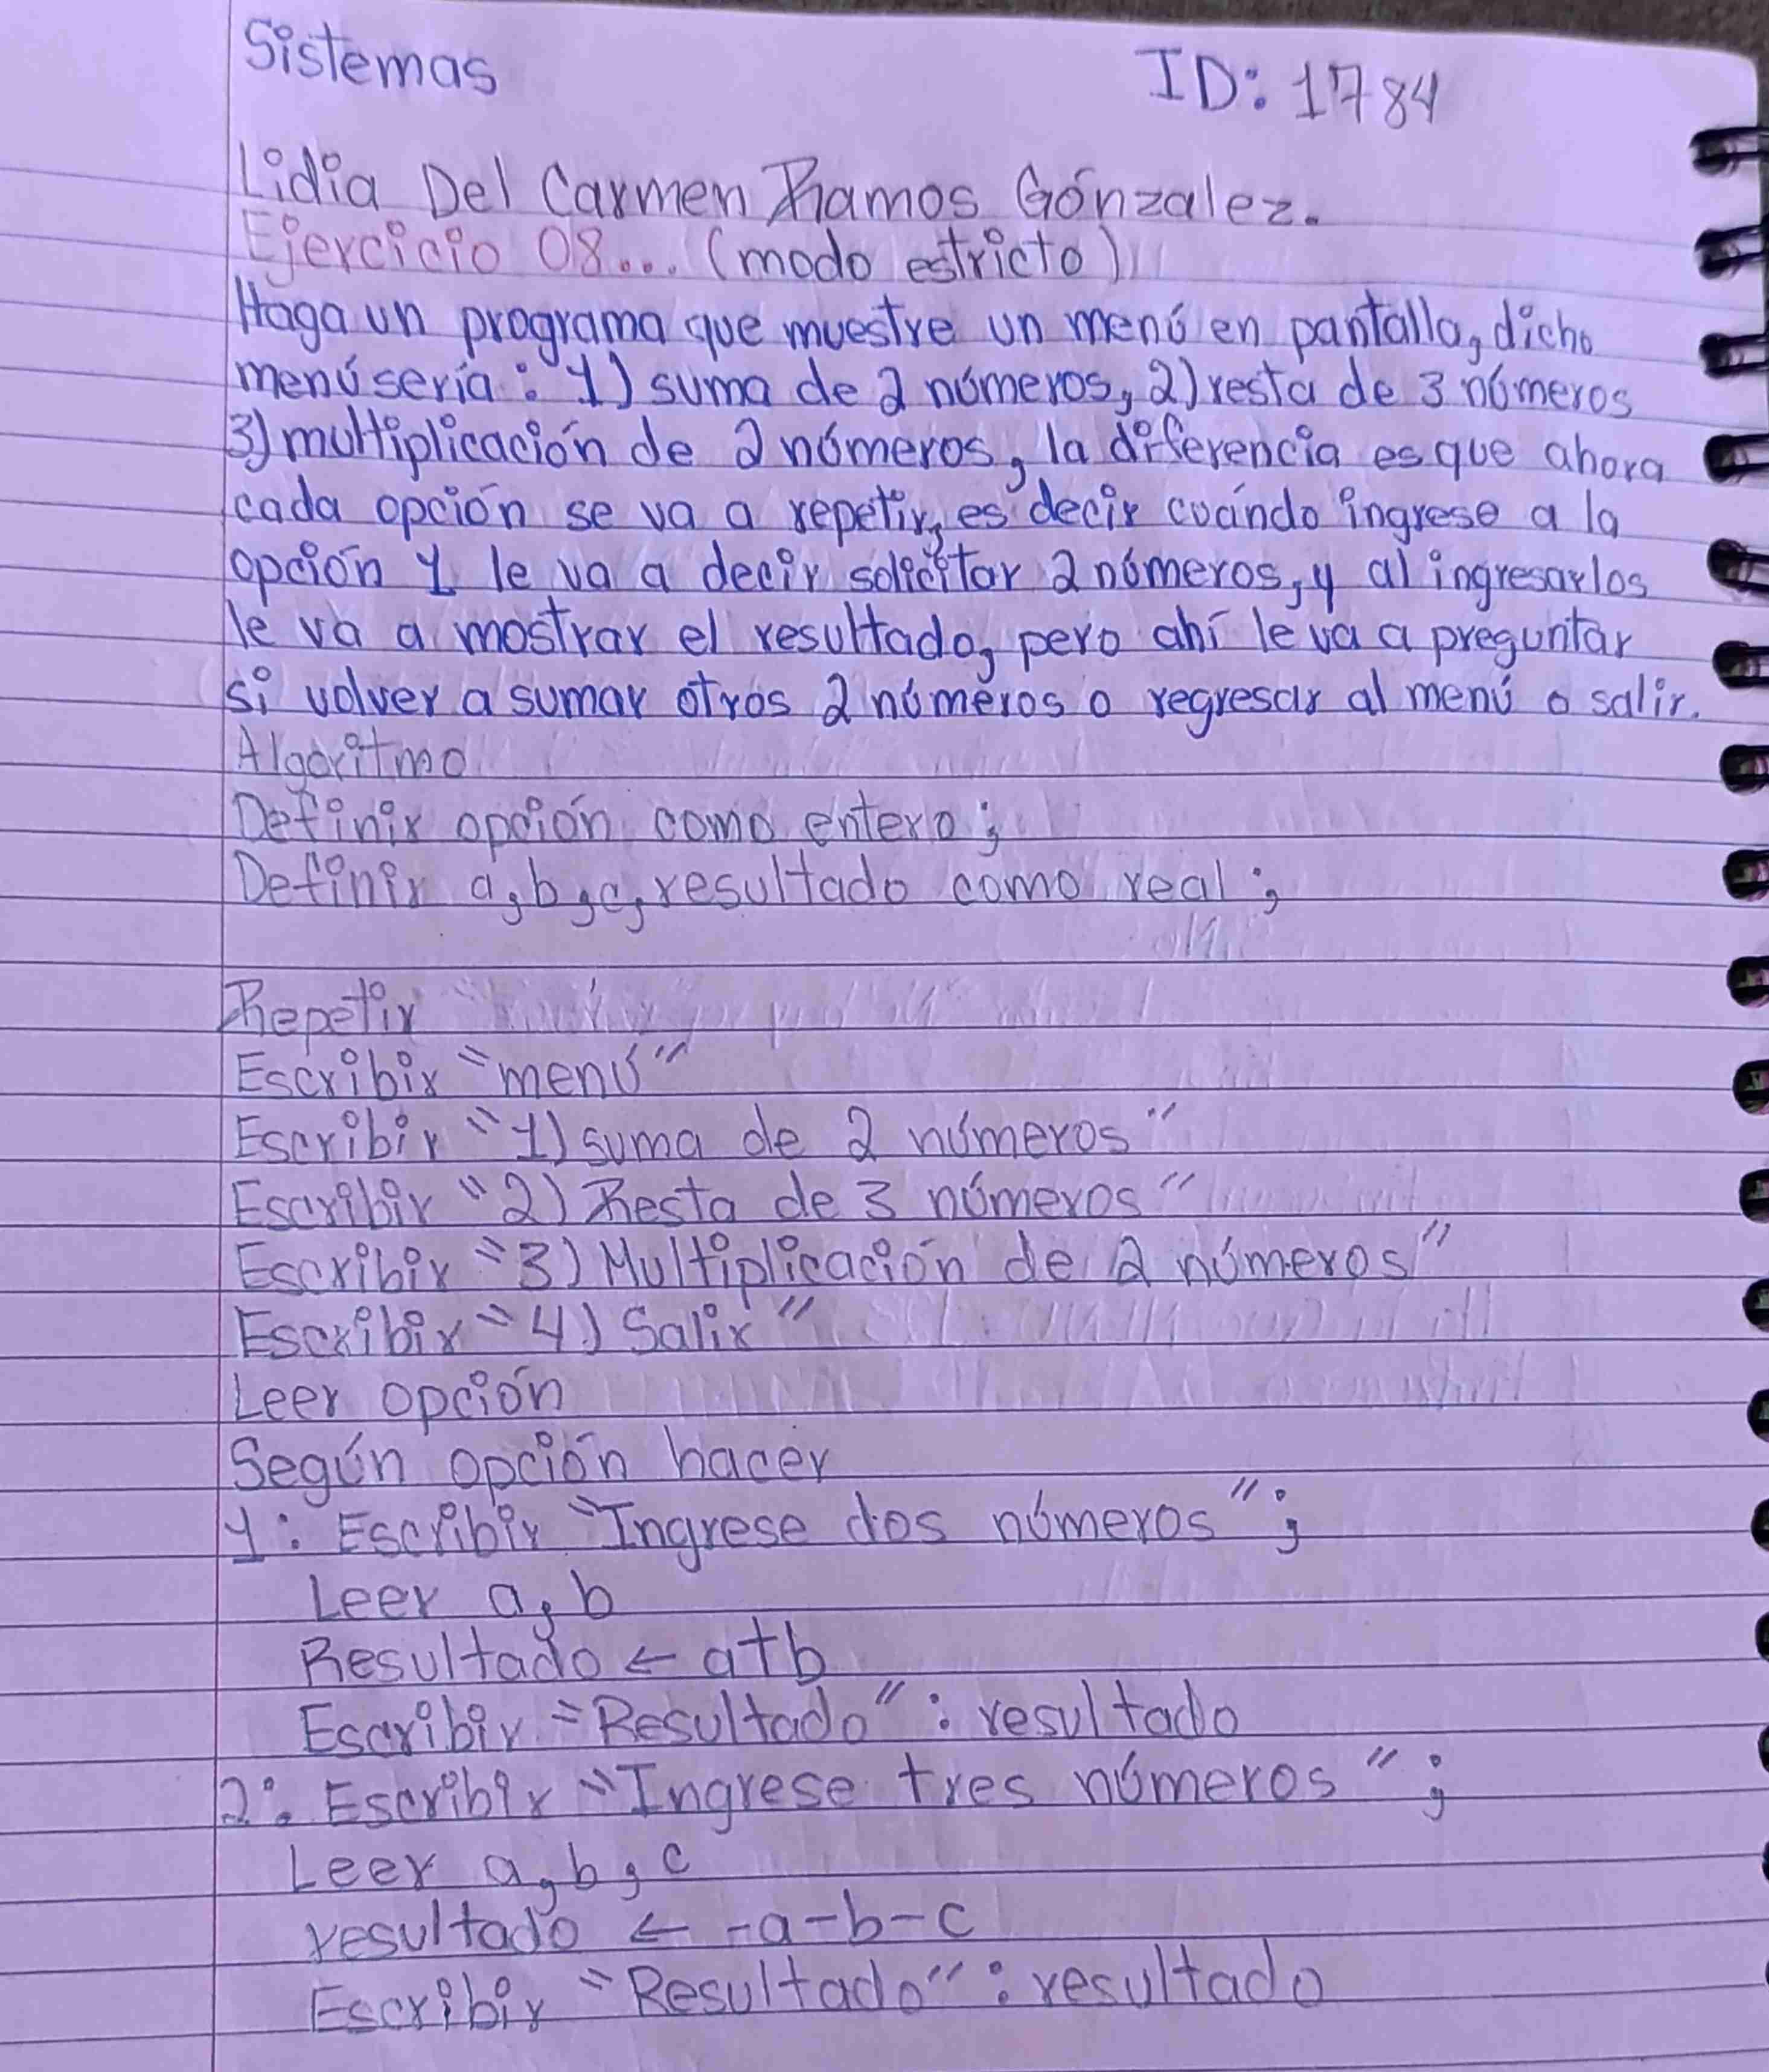 Sistemas
ID: 1784
Lidia Del Carmen Ramos Gónzalez.
Ejercicio 08... (modo estricto)
Haga un programa que muestre un menú en pantalla, dicho
menú sería: 1) suma de 2 números, 2) resta de 3 números
3) multiplicación de 2 números, la diferencia es que ahora
cada opción se va a repetir, es decir cuándo ingrese a la
opción 1 le va a decir solicitar 2 números, y al ingresarlos
le va a mostrar el resultado, pero ahí le va a preguntar
si volver a sumar otros 2 números o regresar al menú o salir.
Algoritmo
Definir opción como entero;
Definir a,b,c,resultado como real;
Repetir
Escribir "menú"
Escribir "1) suma de 2 números"
Escribir "2) Resta de 3 números"
Escribir "3) Multiplicación de 2 números"
Escribir "4) Salir"
Leer opción
Según opción hacer
1: Escribir "Ingrese dos números";
Leer a, b
Resultado ← a+b
Escribir "Resultado": resultado
2: Escribir "Ingrese tres números";
Leer a, b, c
resultado ← -a-b-c
Escribir "Resultado": resultado